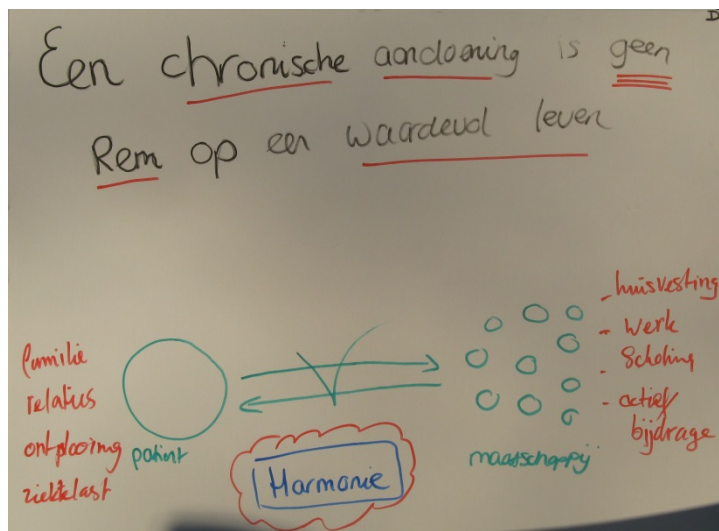 Een chronische aandoening is geen
Rem op een waardevol leven
familie
relaties
ontplooiing
ziektelast
patient
Harmonie
maatschappij
- huisvesting
- werk
- Scholing
- actief
bijdrage
D